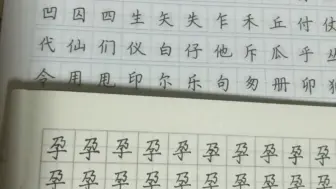 凹 囚 四 生 矢 失 乍 禾 丘 付 仗
代 仙 们 仪 白 仔 他 斥 瓜 乎 丛
令 用 甩 印 尔 乐 句 匆 册 卯 犯
孕 孕 孕 孕 孕 孕 孕 孕 孕 孕
孕 孕 孕 孕 孕 孕 孕 孕 孕 孕